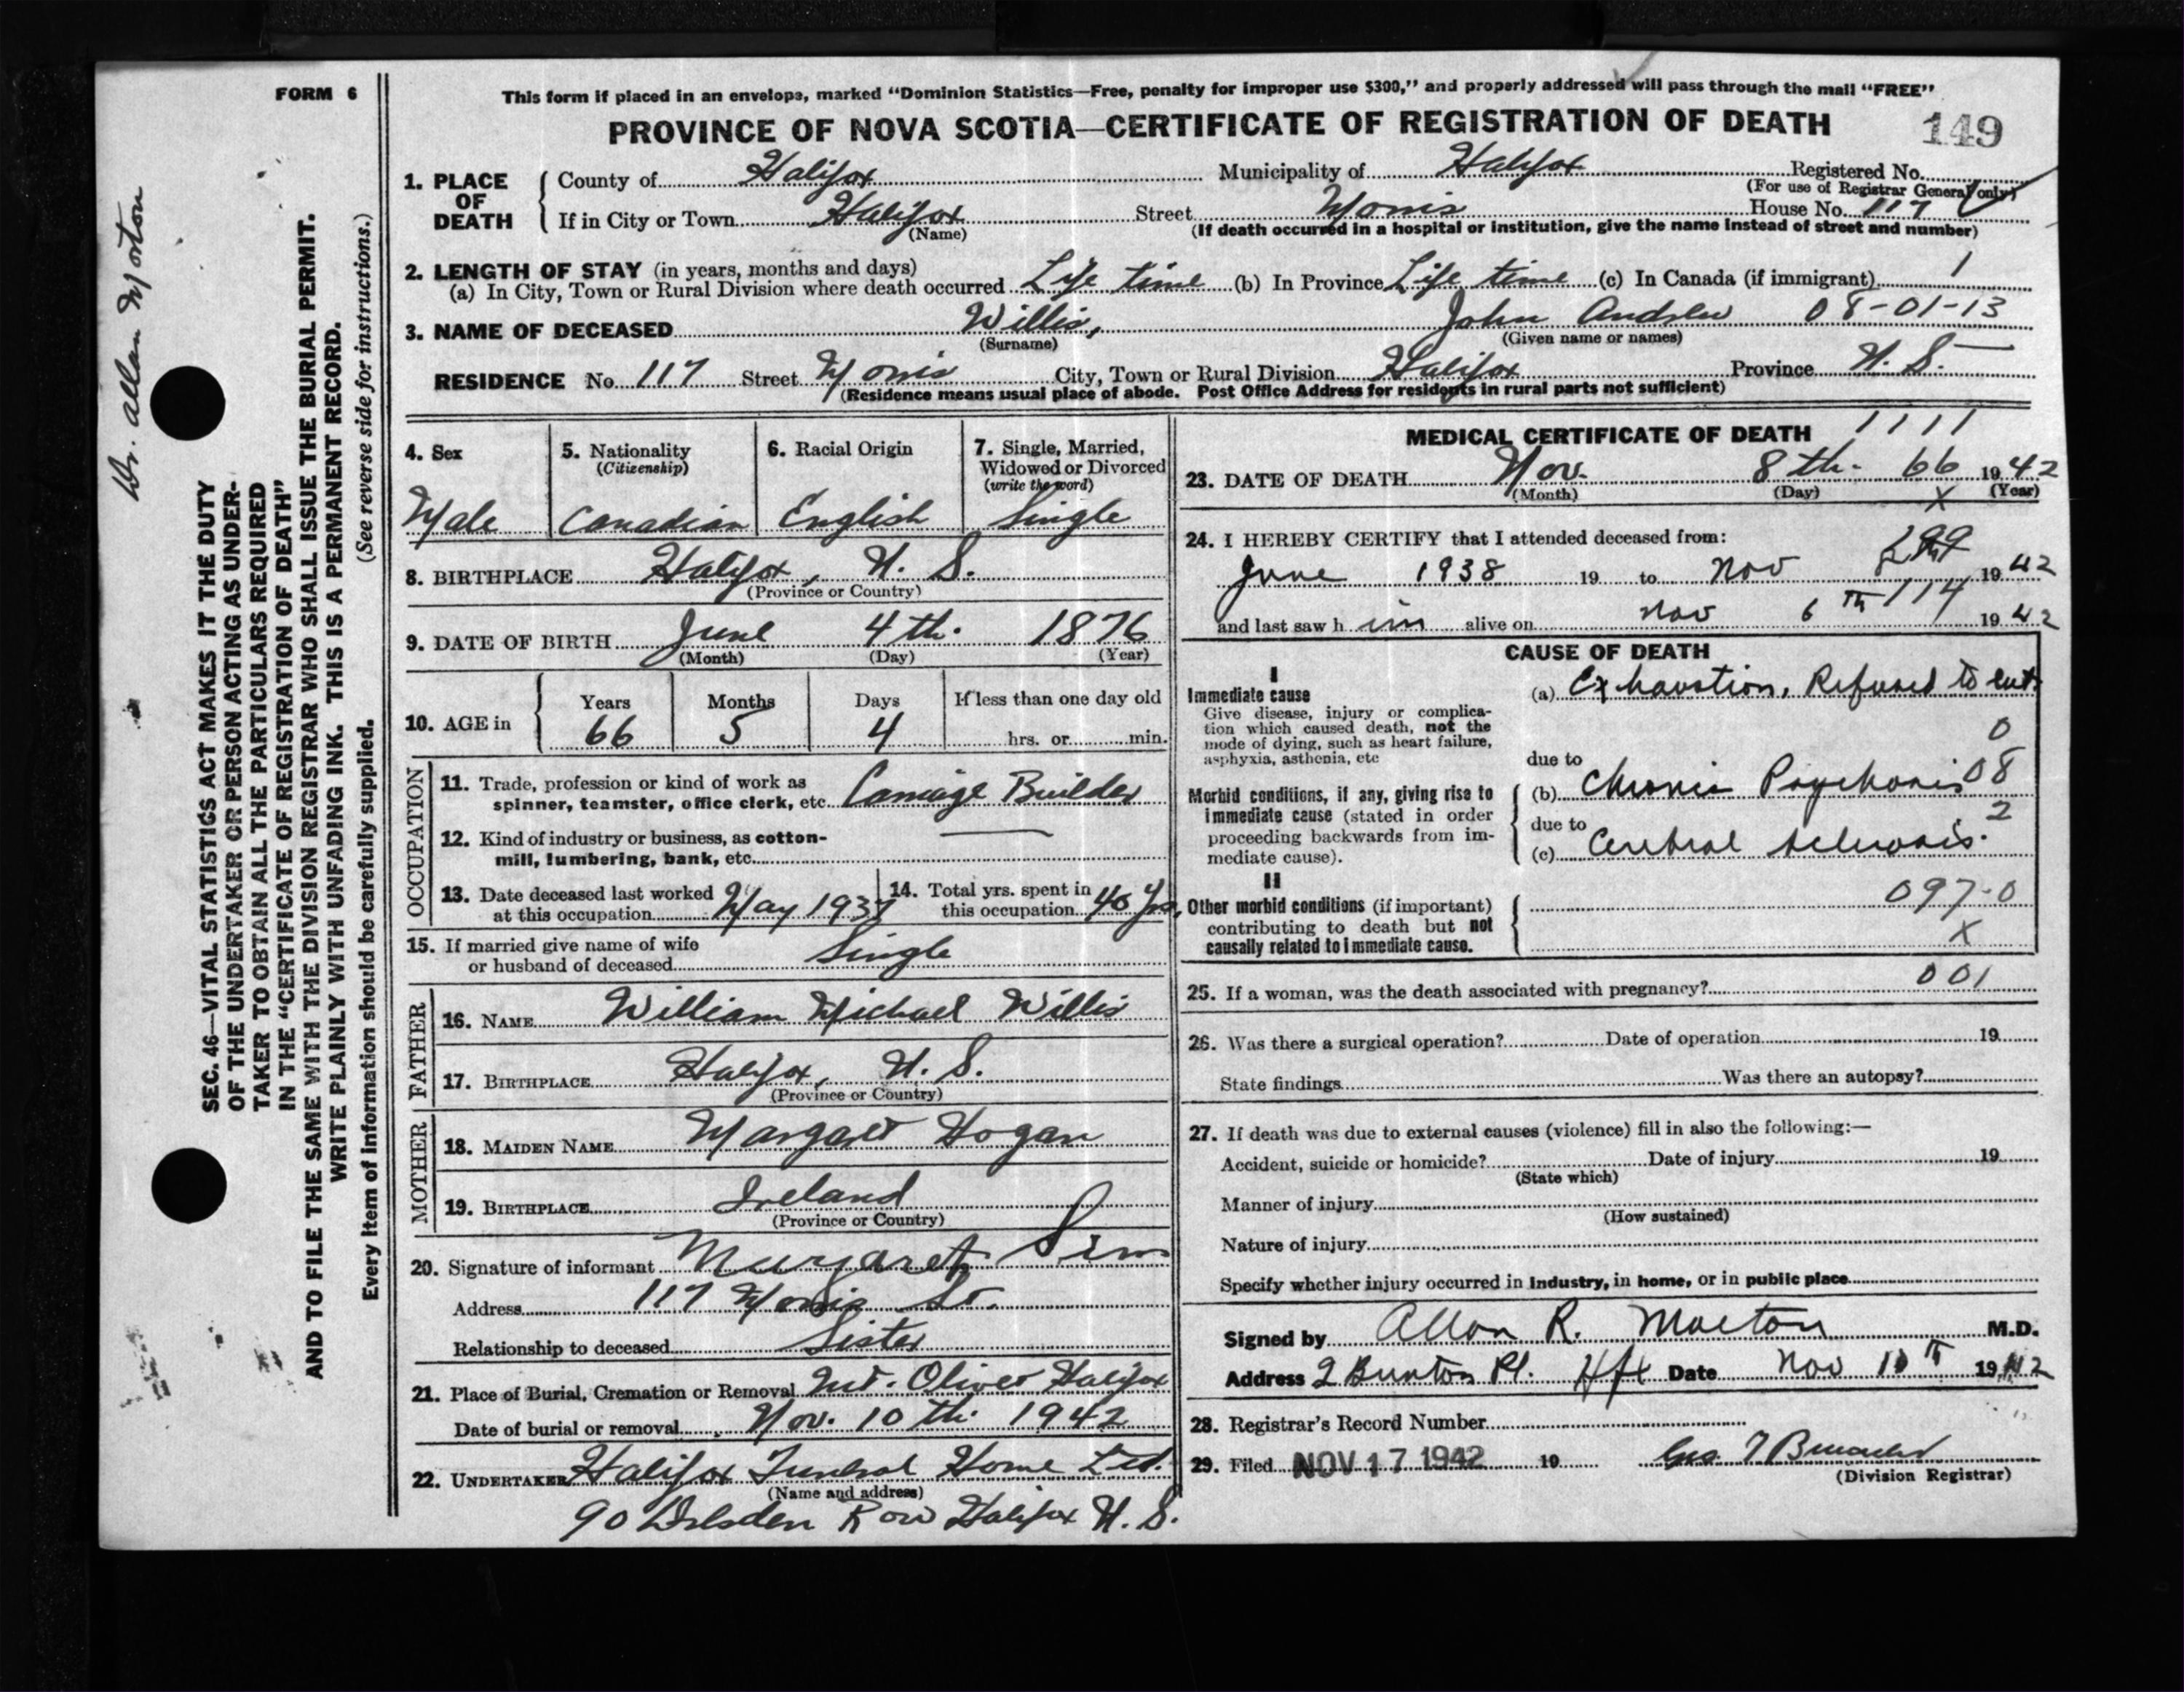 FORM 6
This form if placed in an envelope, marked "Dominion Statistics—Free, penalty for improper use $300," and properly addressed will pass through the mail "FREE"
PROVINCE OF NOVA SCOTIA—CERTIFICATE OF REGISTRATION OF DEATH 149
1. PLACE OF DEATH
County of Halifax Municipality of Halifax Registered No.
(For use of Registrar General only)
If in City or Town Halifax Street Morris House No. 117
(Name) (If death occurred in a hospital or institution, give the name instead of street and number)
2. LENGTH OF STAY (in years, months and days)
(a) In City, Town or Rural Division where death occurred Life time (b) In Province Life time (c) In Canada (if immigrant) 1
3. NAME OF DECEASED Willis, John Andrew 08-01-13
(Surname) (Given name or names)
RESIDENCE No. 117 Street Morris City, Town or Rural Division Halifax Province N. S.
(Residence means usual place of abode. Post Office Address for residents in rural parts not sufficient)
4. Sex
Male
5. Nationality
(Citizenship)
Canadian
6. Racial Origin
English
7. Single, Married,
Widowed or Divorced
(write the word)
Single
8. BIRTHPLACE Halifax, N. S.
(Province or Country)
9. DATE OF BIRTH June 4th. 1876
(Month) (Day) (Year)
10. AGE in
Years Months Days If less than one day old
66 5 4 hrs. or min.
OCCUPATION
11. Trade, profession or kind of work as
spinner, teamster, office clerk, etc. Carriage Builder
12. Kind of industry or business, as cotton-
mill, lumbering, bank, etc.
13. Date deceased last worked
at this occupation May 1937
14. Total yrs. spent in
this occupation 40 yrs.
15. If married give name of wife
or husband of deceased Single
FATHER
16. NAME William Michael Willis
17. BIRTHPLACE Halifax, N. S.
(Province or Country)
MOTHER
18. MAIDEN NAME Margaret Hogan
19. BIRTHPLACE Ireland
(Province or Country)
20. Signature of informant Margaret Sim
Address 117 Morris St.
Relationship to deceased Sister
21. Place of Burial, Cremation or Removal Mt. Olivet Halifax
Date of burial or removal Nov. 10th. 1942
22. UNDERTAKER Halifax Funeral Home Ltd.
(Name and address)
90 Dresden Row Halifax N. S.
MEDICAL CERTIFICATE OF DEATH 1111
23. DATE OF DEATH Nov. 8th. 66 1942
(Month) (Day) (Year)
X
24. I HEREBY CERTIFY that I attended deceased from:
June 1938 19 to Nov 1942
and last saw h im alive on Nov 6th 114 1942
CAUSE OF DEATH
I
Immediate cause
Give disease, injury or complica-
tion which caused death, not the
mode of dying, such as heart failure,
asphyxia, asthenia, etc
(a) Exhaustion. Refused to eat.
0
due to
Morbid conditions, if any, giving rise to
immediate cause (stated in order
proceeding backwards from im-
mediate cause).
(b) Chronic Psychosis 08
due to 2
(c) Cerebral sclerosis.
II
Other morbid conditions (if important)
contributing to death but not
causally related to immediate cause.
097-0
X
25. If a woman, was the death associated with pregnancy? 001
26. Was there a surgical operation? Date of operation 19
State findings Was there an autopsy?
27. If death was due to external causes (violence) fill in also the following:—
Accident, suicide or homicide? Date of injury 19
(State which)
Manner of injury
(How sustained)
Nature of injury
Specify whether injury occurred in industry, in home, or in public place
Signed by Allan R. Morton M.D.
Address 2 Brunton Pl. Hfx Date Nov 10th 1942
28. Registrar's Record Number
29. Filed NOV 17 1942 19 Geo.
(Division Registrar)
Dr. Allan Morton
SEC. 46—VITAL STATISTICS ACT MAKES IT THE DUTY
OF THE UNDERTAKER OR PERSON ACTING AS UNDER-
TAKER TO OBTAIN ALL THE PARTICULARS REQUIRED
IN THE "CERTIFICATE OF REGISTRATION OF DEATH"
AND TO FILE THE SAME WITH THE DIVISION REGISTRAR WHO SHALL ISSUE THE BURIAL PERMIT.
WRITE PLAINLY WITH UNFADING INK. THIS IS A PERMANENT RECORD.
Every item of information should be carefully supplied. (See reverse side for instructions.)